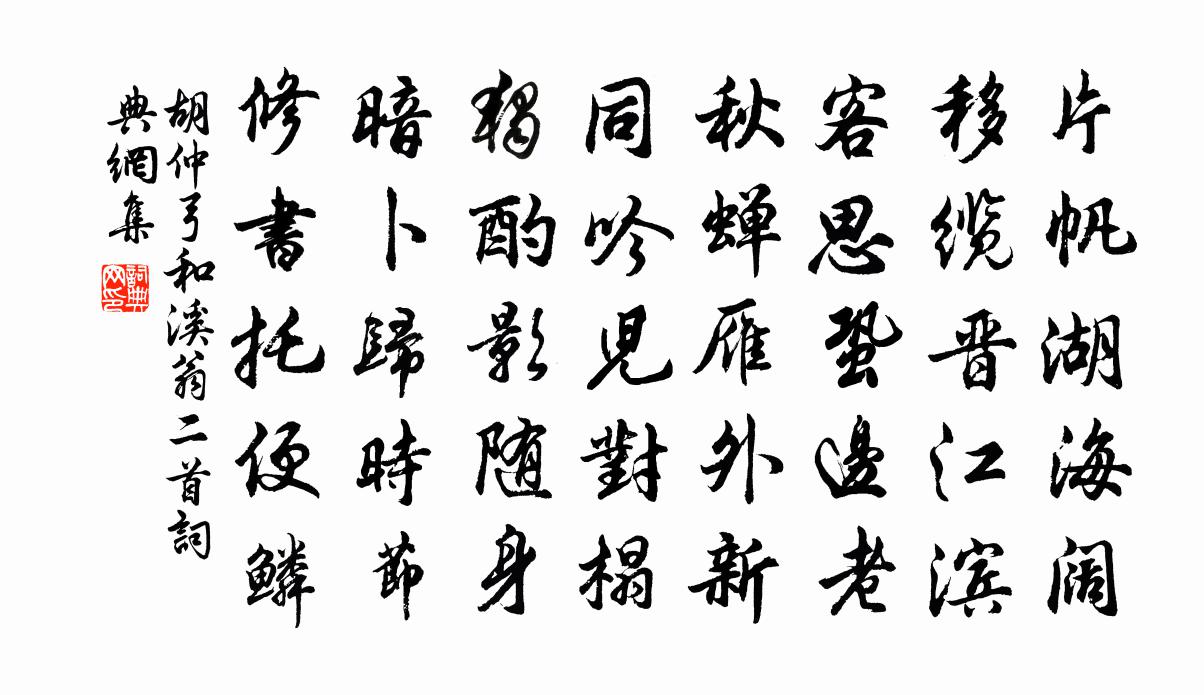 片帆湖海阔
移缆晋江滨
客思蛩邊老
秋蝉雁外新
同吟児對榻
獨酌影随身
暗卜歸時節
修書托便鱗
胡仲弓和溪翁二首詞
典網集
詞典网印